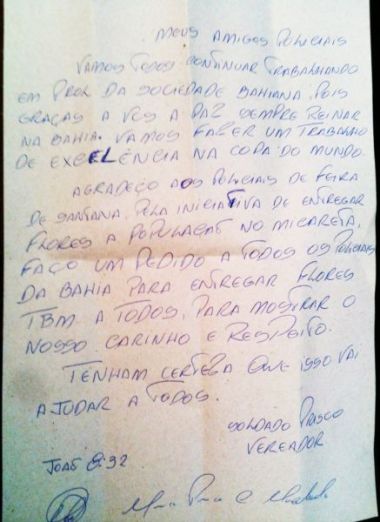 MEUS AMIGOS POLICIAIS
VAMOS TODOS CONTINUAR TRABALHANDO
EM PROL DA SOCIEDADE BAHIANA, POIS
GRAÇAS A VCS A PAZ SEMPRE REINAR
NA BAHIA. VAMOS FAZER UM TRABALHO
DE EXCELÊNCIA NA COPA DO MUNDO.
AGRADEÇO AOS POLICIAIS DE FEIRA
DE SANTANA, PELA INICIATIVA DE ENTREGAR
FLORES A POPULAÇÃO NO MICARETA,
FAÇO UM PEDIDO A TODOS OS POLICIAIS
DA BAHIA PARA ENTREGAR FLORES
TBM A TODOS, PARA MOSTRAR O
NOSSO CARINHO E RESPEITO.
TENHAM CERTEZA QUE ISSO VAI
AJUDAR A TODOS.
SOLDADO PRISCO
VEREADOR
JOÃO 8:32